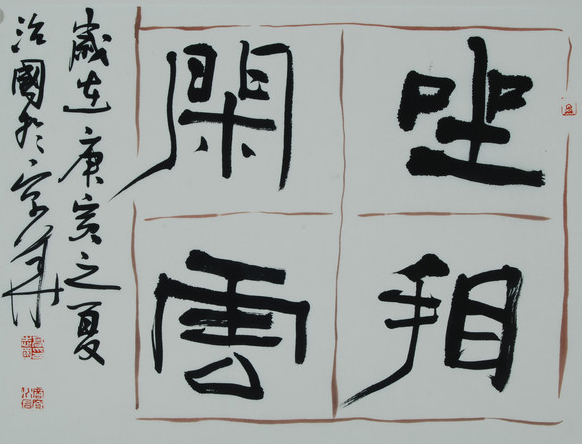 坐看
閑雲
歲在庚寅之夏
治國於京華